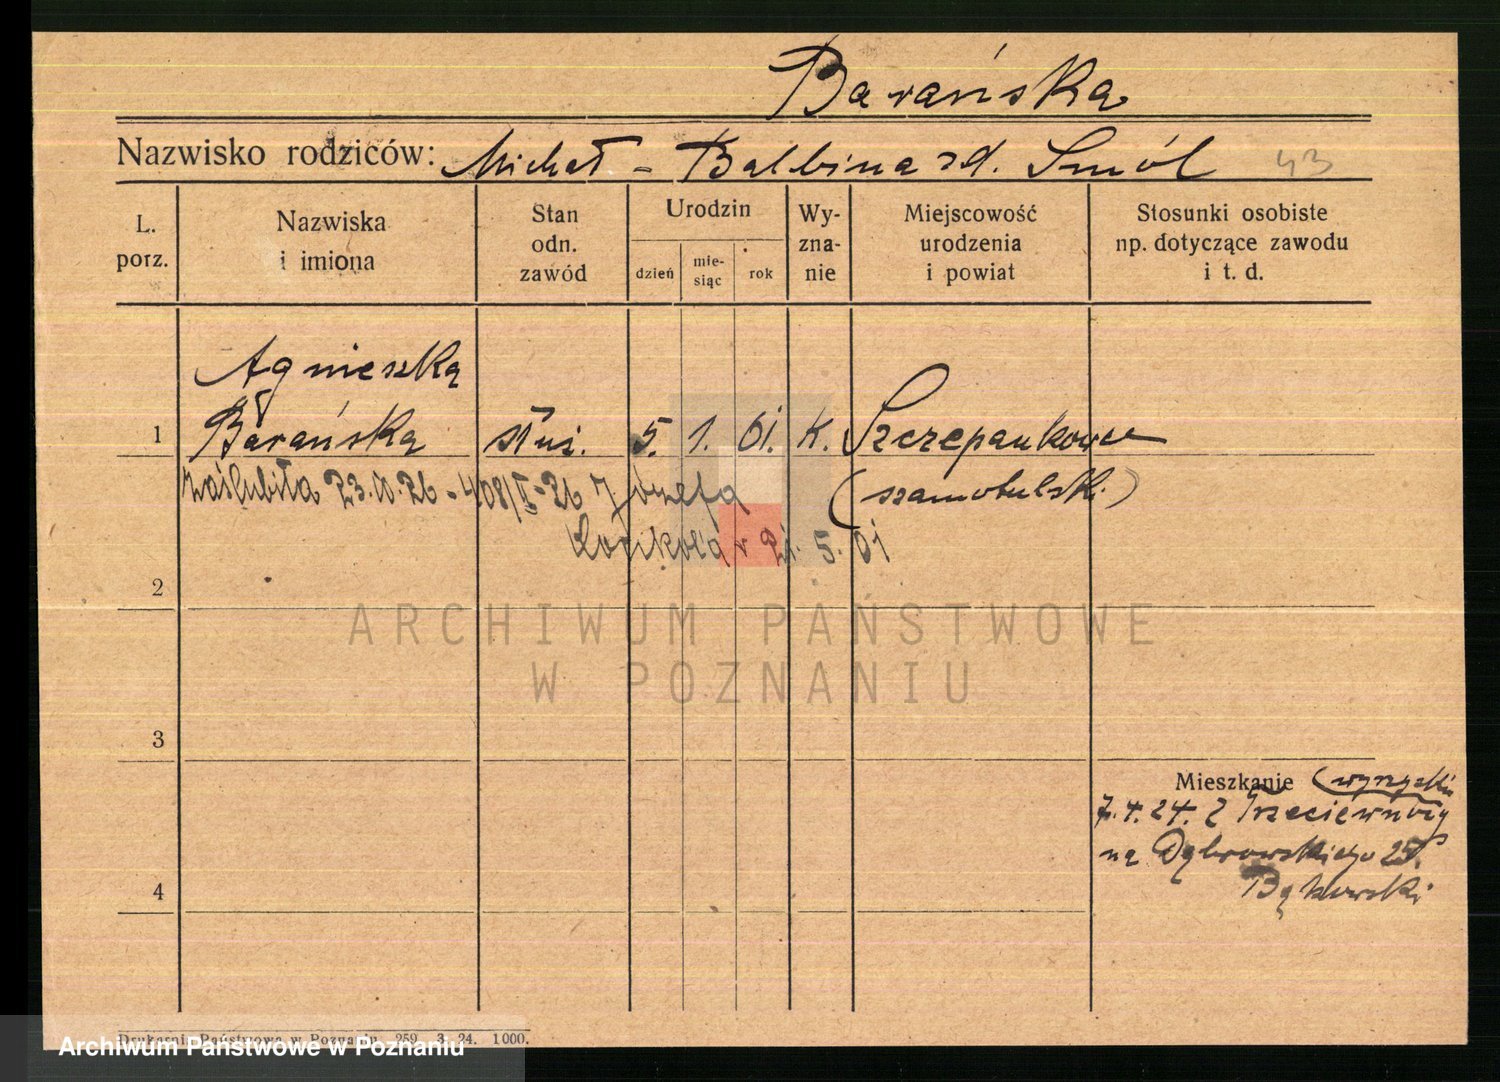 Barańska
Nazwisko rodziców: Michał - Balbina zd. Smól 43
L. porz.
Nazwiska i imiona
Stan odn. zawód
Urodzin
dzień
mie-siąc
rok
Wy-zna-nie
Miejscowość urodzenia i powiat
Stosunki osobiste np. dotyczące zawodu i t. d.
Agnieszka
1 Barańska służ. 5. 1. 01. K. Szczepankowo
(szamotulski)
zaślubiła 23.10.26 - 408/II-26 Józefa
21. 5. 01
2
ARCHIWUM PAŃSTWOWE
W POZNANIU
3
Mieszkanie (wyrzyski
7.4.24. z Trzeciewnicy
na Dąbrowskiego 25.
Bąkowski
4
Drukarnia Państwowa w Poznaniu 259. 3. 24. 1000.
Archiwum Państwowe w Poznaniu